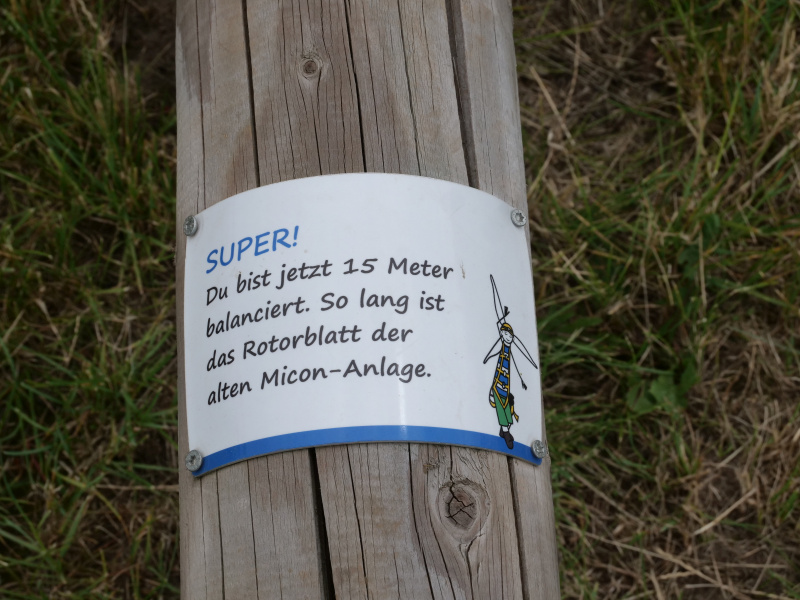 SUPER!
Du bist jetzt 15 Meter
balanciert. So lang ist
das Rotorblatt der
alten Micon-Anlage.